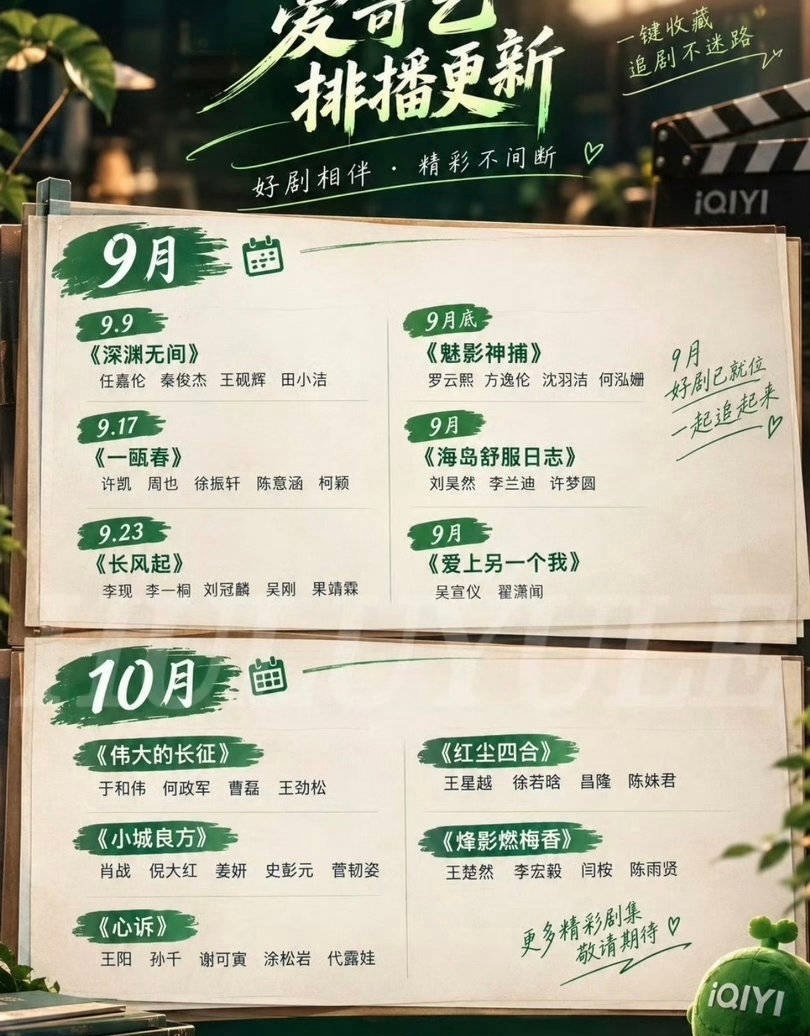 爱奇艺
排播更新
好剧相伴 · 精彩不间断
一键收藏
追剧不迷路
iQIYI
9月
9.9
《深渊无间》
任嘉伦 秦俊杰 王砚辉 田小洁
9.17
《一瓯春》
许凯 周也 徐振轩 陈意涵 柯颖
9.23
《长风起》
李现 李一桐 刘冠麟 吴刚 果靖霖
9月底
《魅影神捕》
罗云熙 方逸伦 沈羽洁 何泓姗
9月
《海岛舒服日志》
刘昊然 李兰迪 许梦圆
9月
《爱上另一个我》
吴宣仪 翟潇闻
9月
好剧已就位
一起追起来
10月
《伟大的长征》
于和伟 何政军 曹磊 王劲松
《小城良方》
肖战 倪大红 姜妍 史彭元 菅韧姿
《心诉》
王阳 孙千 谢可寅 涂松岩 代露娃
《红尘四合》
王星越 徐若晗 昌隆 陈姝君
《烽影燃梅香》
王楚然 李宏毅 闫桉 陈雨贤
更多精彩剧集
敬请期待
iQIYI